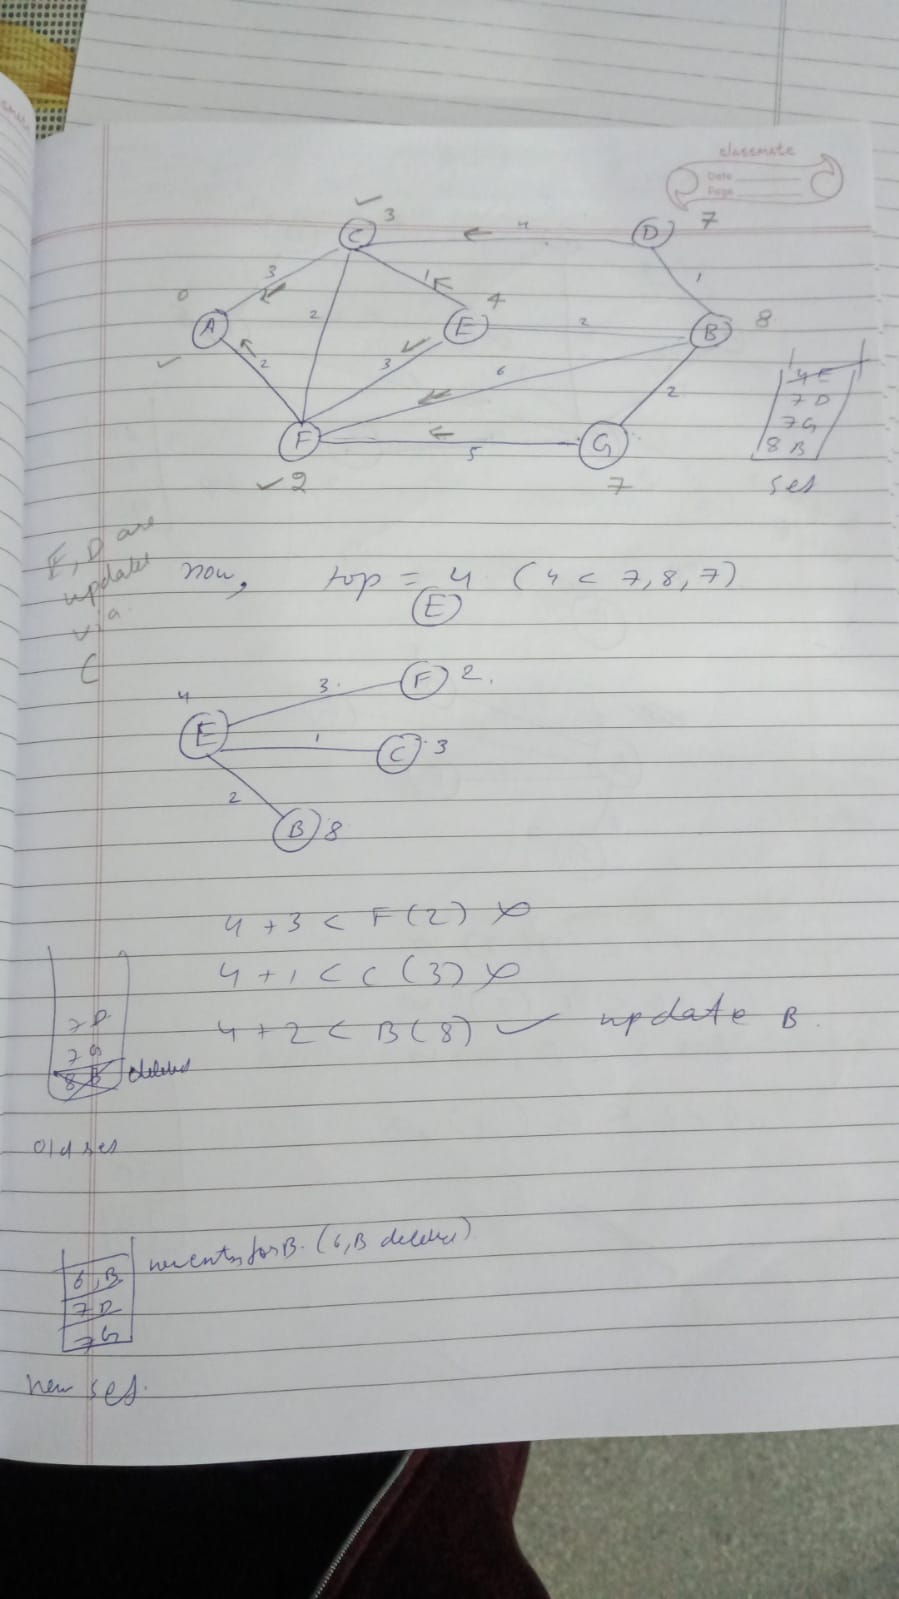 classmate
Date
Page
✓
C 3
D 7
4
3
1
1
0
A
2
E 4
2
B 8
✓
2
3
6
2
4 E
7 D
7 G
8 B
F
5
G
✓ 2
7
set
E, D are
update
via
C
now, top = 4 (4 < 7, 8, 7)
E
3 F 2.
4
E
1 C 3
2
B 8
4 + 3 < F(2) ×
4 + 1 < C(3) ×
4 + 2 < B(8) ✓ update B.
7 D
7 G
8 B deleted
old set
6, B new entry for B. (6, B deleted)
7 D
7 G
new set.